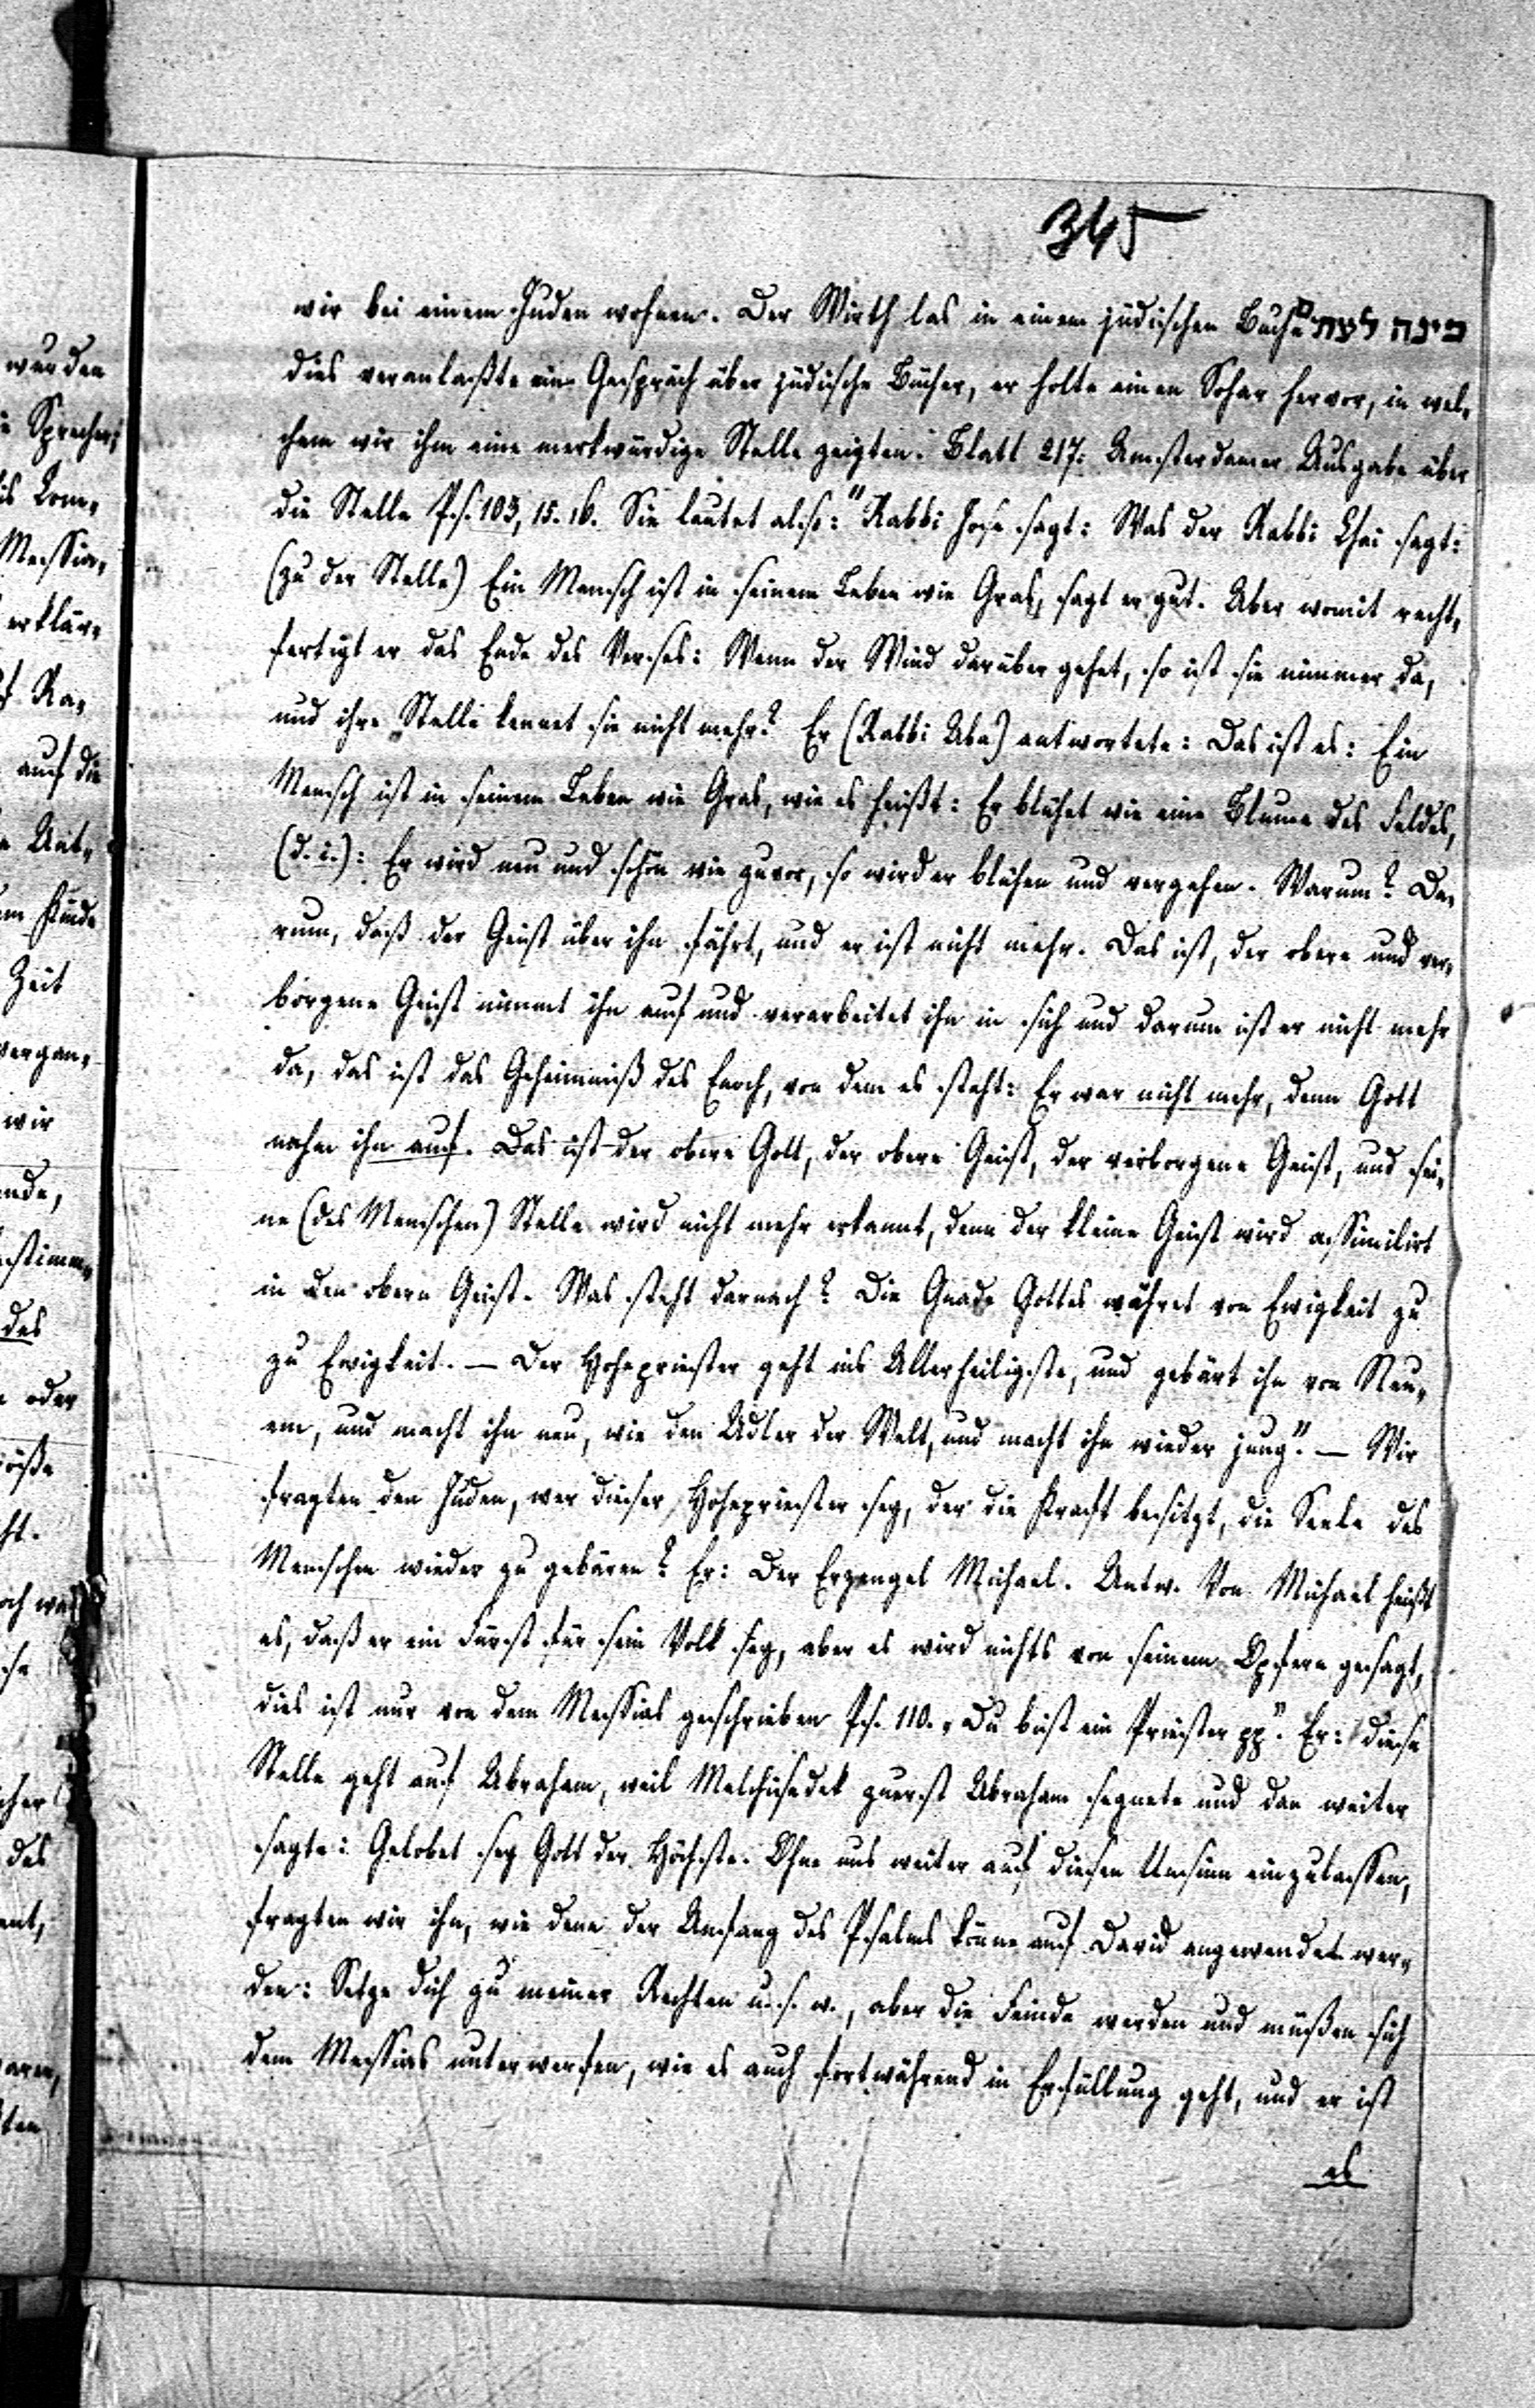 345
wir bei einem Juden wohnen. Der Wirth las in einem jüdischen Buche בינה לעתים
dies veranlaßte ein Gespräch über jüdische Bücher, er holte einen Sohar hervor, in wel„
chem wir ihm eine merkwürdige Stelle zeigten. Blatt 217. Amsterdamer Ausgabe über
die Stelle Ps. 103, 15. 16. Sie lautet also: "Rabbi Jose sagt: Was der Rabbi Chai sagt:
(zu der Stelle) Ein Mensch ist in seinem Leben wie Gras, sagt er gut. Aber womit recht„
fertigt er das Ende des Verses: Wenn der Wind darüber gehet, so ist sie nimmer da,
und ihre Stelle kennet sie nicht mehr? Er (Rabbi Aba) antwortete: Das ist es: Ein
Mensch ist in seinem Leben wie Gras, wie es heißt: Er blühet wie eine Blume des Feldes,
(d. i.): Er wird neu und schön wie zuvor, so wird er blühen und vergehen. Warum? Da„
rum, daß der Geist über ihn fährt, und er ist nicht mehr. Das ist, der obere und ver„
borgene Geist nimmt ihn auf und verarbeitet ihn in sich und darum ist er nicht mehr
da, das ist das Geheimniß des Enoch, von dem es steht: Er war nicht mehr, denn Gott
nahm ihn auf. Das ist der obere Gott, der obere Geist, der verborgene Geist, und sei„
ne (des Menschen) Stelle wird nicht mehr erkannt, denn der kleine Geist wird assimilirt
in den obern Geist. Was steht darnach? Die Gnade Gottes währet von Ewigkeit zu
zu Ewigkeit. — Der Hohepriester geht ins Allerheiligste, und gebärt ihn von Neu„
em, und macht ihn neu, wie den Adler der Welt, und macht ihn wieder jung". — Wir
fragten den Juden, wer dieser Hohepriester sey, der die Kraft besitzt, die Seele des
Menschen wieder zu gebären? Er: Der Erzengel Michael. Antw. Von Michael heißt
es, daß er ein Fürst für sein Volk sey, aber es wird nichts von seinem Opfern gesagt,
dies ist nur von dem Messias geschrieben Ps. 110. „Du bist ein Priester pp". Er: diese
Stelle geht auf Abraham, weil Melchisedek zuerst Abraham segnete und dan weiter
sagte: Gelobet sey Gott der Höchste. Ohne uns weiter auf diesen Unsinn einzulassen,
fragten wir ihn, wie denn der Anfang des Psalms könne auf David angewendet wer„
den: Setze dich zu meiner Rechten u. s. w., aber die Feinde werden und müßen sich
dem Messias unterwerfen, wie es auch fortwährend in Erfüllung geht, und er ist
es